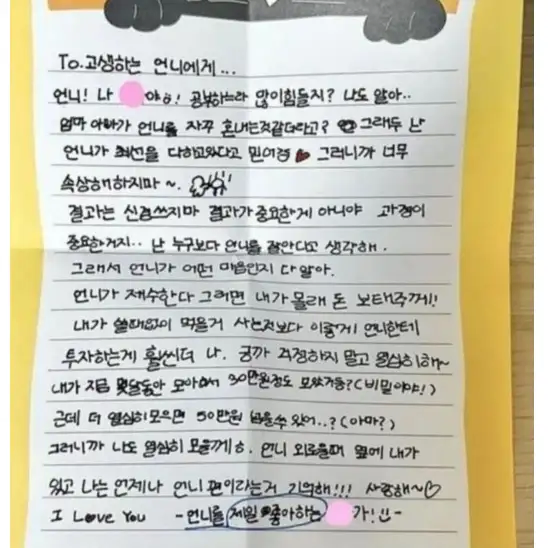 To.고생하는 언니에게...
언니! 나 야ㅎ! 공부하느라 많이힘들지? 나도 알아..
엄마 아빠가 언니를 자꾸 혼내는것같더라고? 그래두 난
언니가 최선을 다하고있다고 믿어정 그러니까 너무
속상해하지마~.
결과는 신경쓰지마 결과가 중요한게 아니야 과정이
중요한거지.. 난 누구보다 언니를 잘안다고 생각해.
그래서 언니가 어떤 마음인지 다 알아.
언니가 재수한다 그러면 내가 몰래 돈 보태주께!
내가 쓸떼없이 먹을거 사는것보다 이렇게 언니한테
투자하는게 훨씬더 나. 긍까 걱정하지 말고 열심히해~
내가 지금 몇달동안 모아놔서 30만원정도 모았거등? (비밀이야!)
근데 더 열심히모으면 50만원 넘을수 있어..? (아마?)
그러니까 나도 열심히 모을께ㅎ. 언니 외로울때 옆에 내가
있고 나는 언제나 언니 편이라는거 기억해!!! 사랑해~♡
I Love You - 언니를 제일 좋아하는 가! -